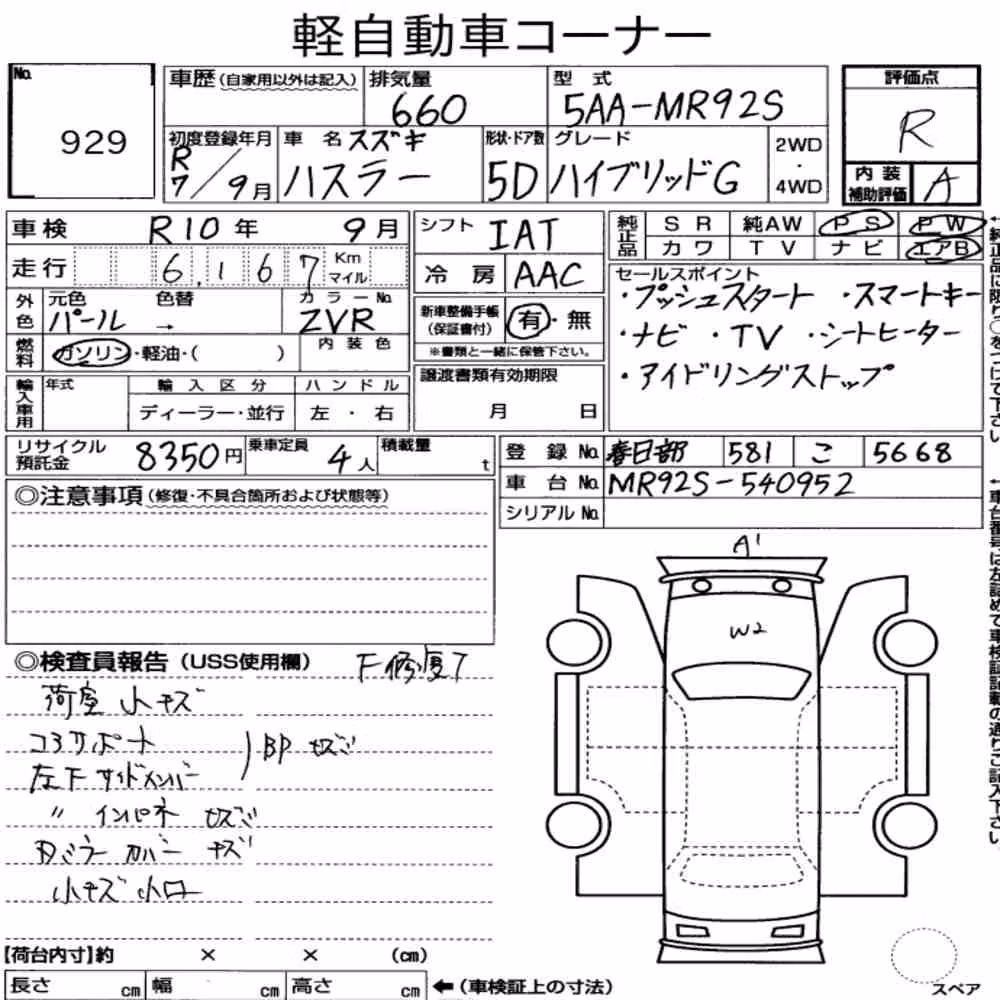 軽自動車コーナー
No. 929
車歴(自家用以外は記入) 排気量 660 型式 5AA-MR92S
評価点 R
初度登録年月 R7/9月 車名 スズキ ハスラー 形状・ドア数 5D グレード ハイブリッドG 2WD・4WD
内装補助評価 A
車検 R10年 9月
シフト IAT
純正品 SR 純AW PS PW
カワ TV ナビ エアB
走行 6,167 Km マイル
冷房 AAC
セールスポイント
・プッシュスタート ・スマートキー
・ナビ ・TV ・シートヒーター
・アイドリングストップ
外色 元色 パール 色替 → カラーNo. ZVR
新車整備手帳(保証書付) 有・無
※書類と一緒に保管下さい。
燃料 ガソリン・軽油・( ) 内装色
譲渡書類有効期限
月 日
輸入車用 年式 輸入区分 ハンドル
ディーラー・並行 左・右
リサイクル預託金 8350円 乗車定員 4人 積載量 t
登録No. 春日部 581 こ 5668
車台No. MR92S-540952
シリアルNo.
←純正品に限り○をつけて下さい
←車台番号は左詰めで車検証記載の通りご記入下さい。
◎注意事項(修復・不具合箇所および状態等)
◎検査員報告(USS使用欄) F修復了
荷室 小キズ
コアサポート
左下サイドメンバー
)BP キズ
〃 インパネ キズ
Rミラー カバー キズ
小キズ 小凹
A1
W2
【荷台内寸】約 × × (cm)
長さ cm 幅 cm 高さ cm ←(車検証上の寸法)
スペア